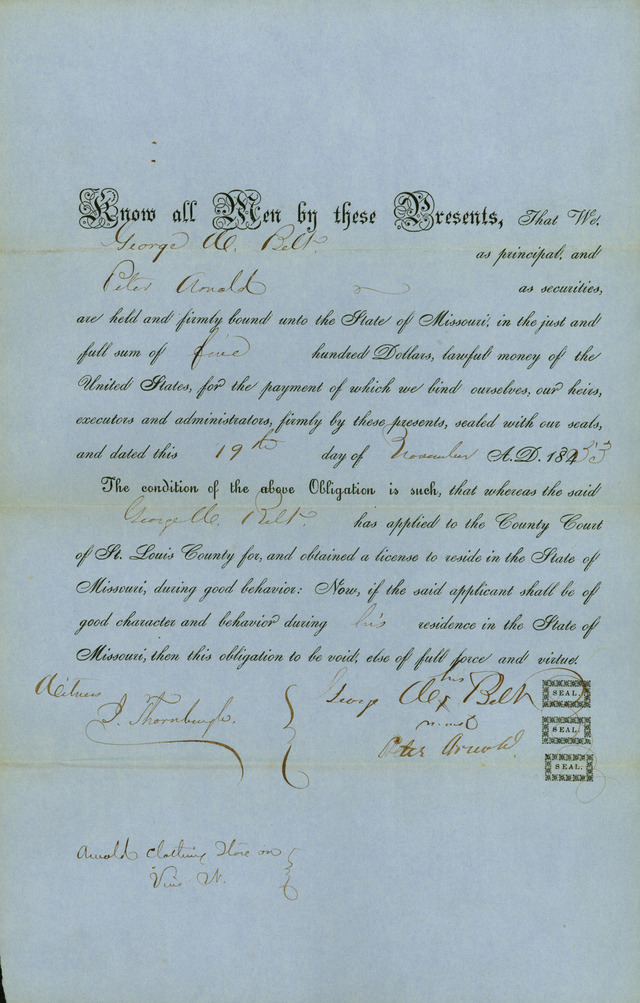 Know all Men by these Presents, That We,
George W. Belt.
as principal, and
Peter Arnold as securities,
are held and firmly bound unto the State of Missouri, in the just and
full sum of five hundred Dollars, lawful money of the
United States, for the payment of which we bind ourselves, our heirs,
executors and administrators, firmly by these presents, sealed with our seals,
and dated this 19th day of November A.D. 1853
The condition of the above Obligation is such, that whereas the said
George W. Belt. has applied to the County Court
of St. Louis County for, and obtained a license to reside in the State of
Missouri, during good behavior: Now, if the said applicant shall be of
good character and behavior during his residence in the State of
Missouri, then this obligation to be void, else of full force and virtue.
Witness
his
George W. x Belt SEAL
J. Thornburgh. SEAL.
Peter Arnold. SEAL.
Arnold Clothing Store on
Vine St.